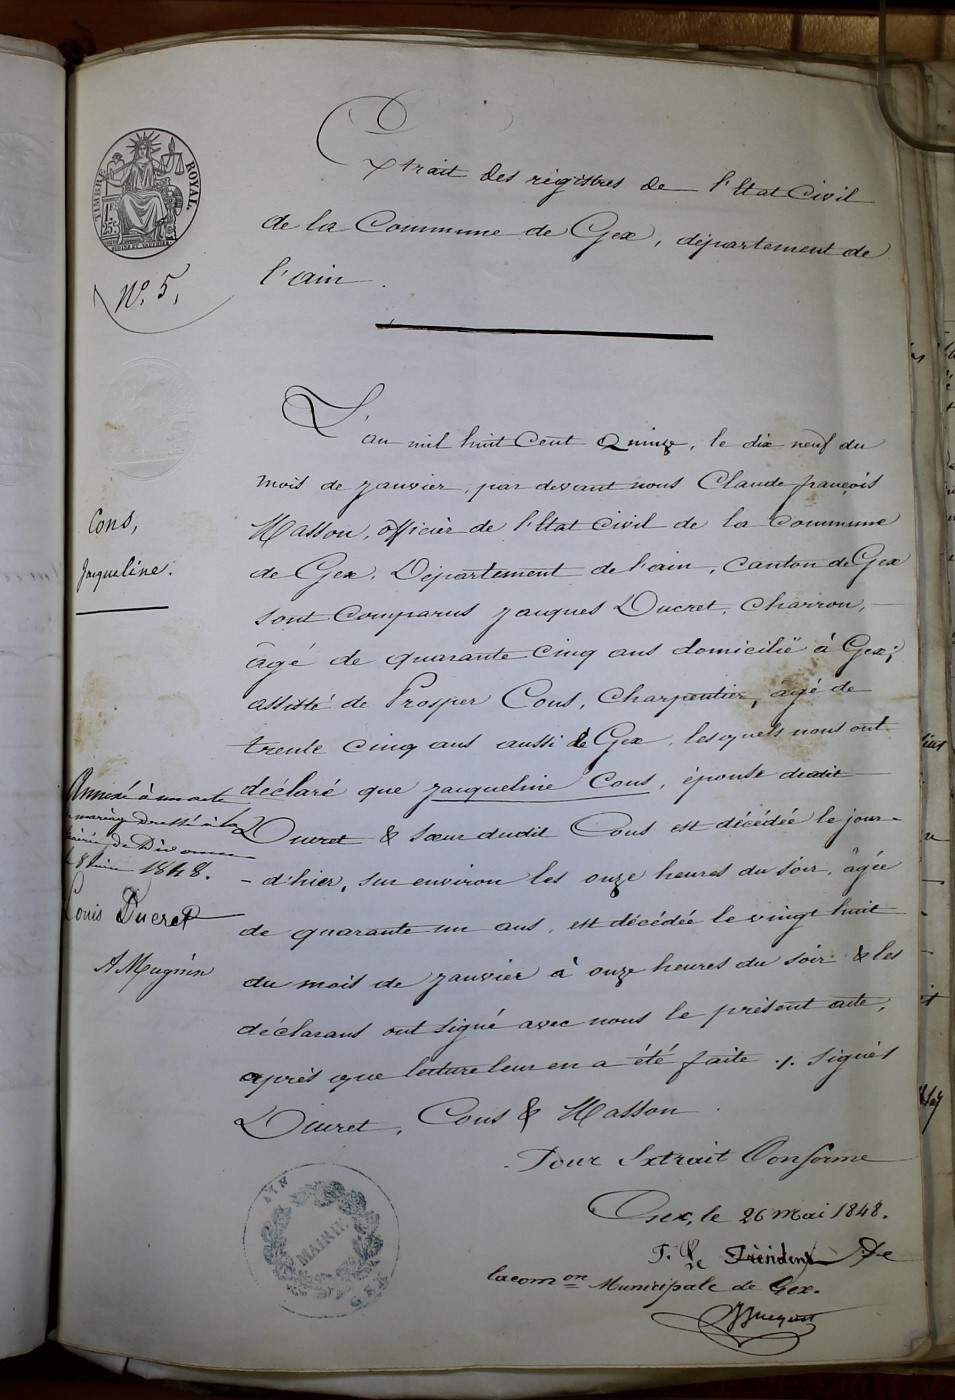 TIMBRE ROYAL.
Nº. 5,
Extrait des registres de l'Etat Civil
de la Commune de Gex, département de
l'ain.
Cons,
Jaqueline.
L'an mil huit Cent Quinze, le dix neuf du
mois de janvier, par devant nous Claude françois
Masson, officier de l'Etat Civil de la Commune
de Gex, Département de l'ain, Canton de Gex
sont Comparus Jauques Ducret, Charron,
âgé de quarante Cinq ans domicilié à Gex;
assisté de Prosper Cons, Charpentier, agé de
trente Cinq ans aussi de Gex, lesquels nous ont
déclaré que jauqueline Cons, épouse dudit
Ducret & sœur dudit Cons est décédée le jour
d'hier, sur environ les onze heures du soir, âgée
de quarante un ans, est décédée le vingt huit
du mois de janvier à onze heures du soir & les
déclarans ont signé avec nous le présent acte,
après que lecture leur en a été faite ./. Signés
Ducret, Cons & Masson.
Annexé à un acte
mariage dressé à la
mairie de Divonne
8 juin 1848.
Louis Ducret
A Magnin
Pour Extrait Conforme
Gex, le 26 Mai 1848.
P. Le Président De
la com.on Municipale de Gex.
AIN
MAIRIE
GEX